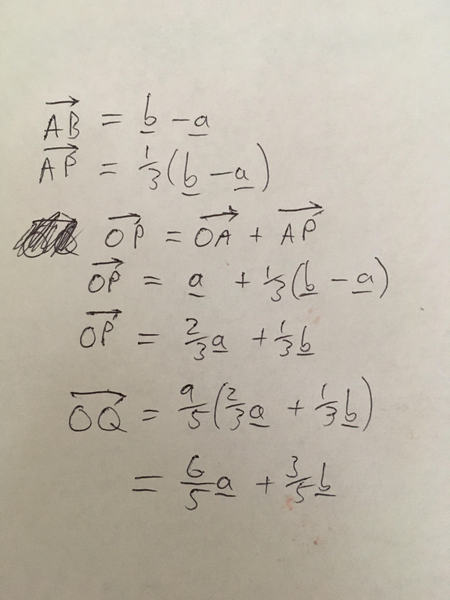 AB⃗ = b̲ - a̲
AP⃗ = 1/3(b̲ - a̲)
OP⃗ = OA⃗ + AP⃗
OP⃗ = a̲ + 1/3(b̲ - a̲)
OP⃗ = 2/3a̲ + 1/3b̲
OQ⃗ = 9/5(2/3a̲ + 1/3b̲)
= 6/5a̲ + 3/5b̲